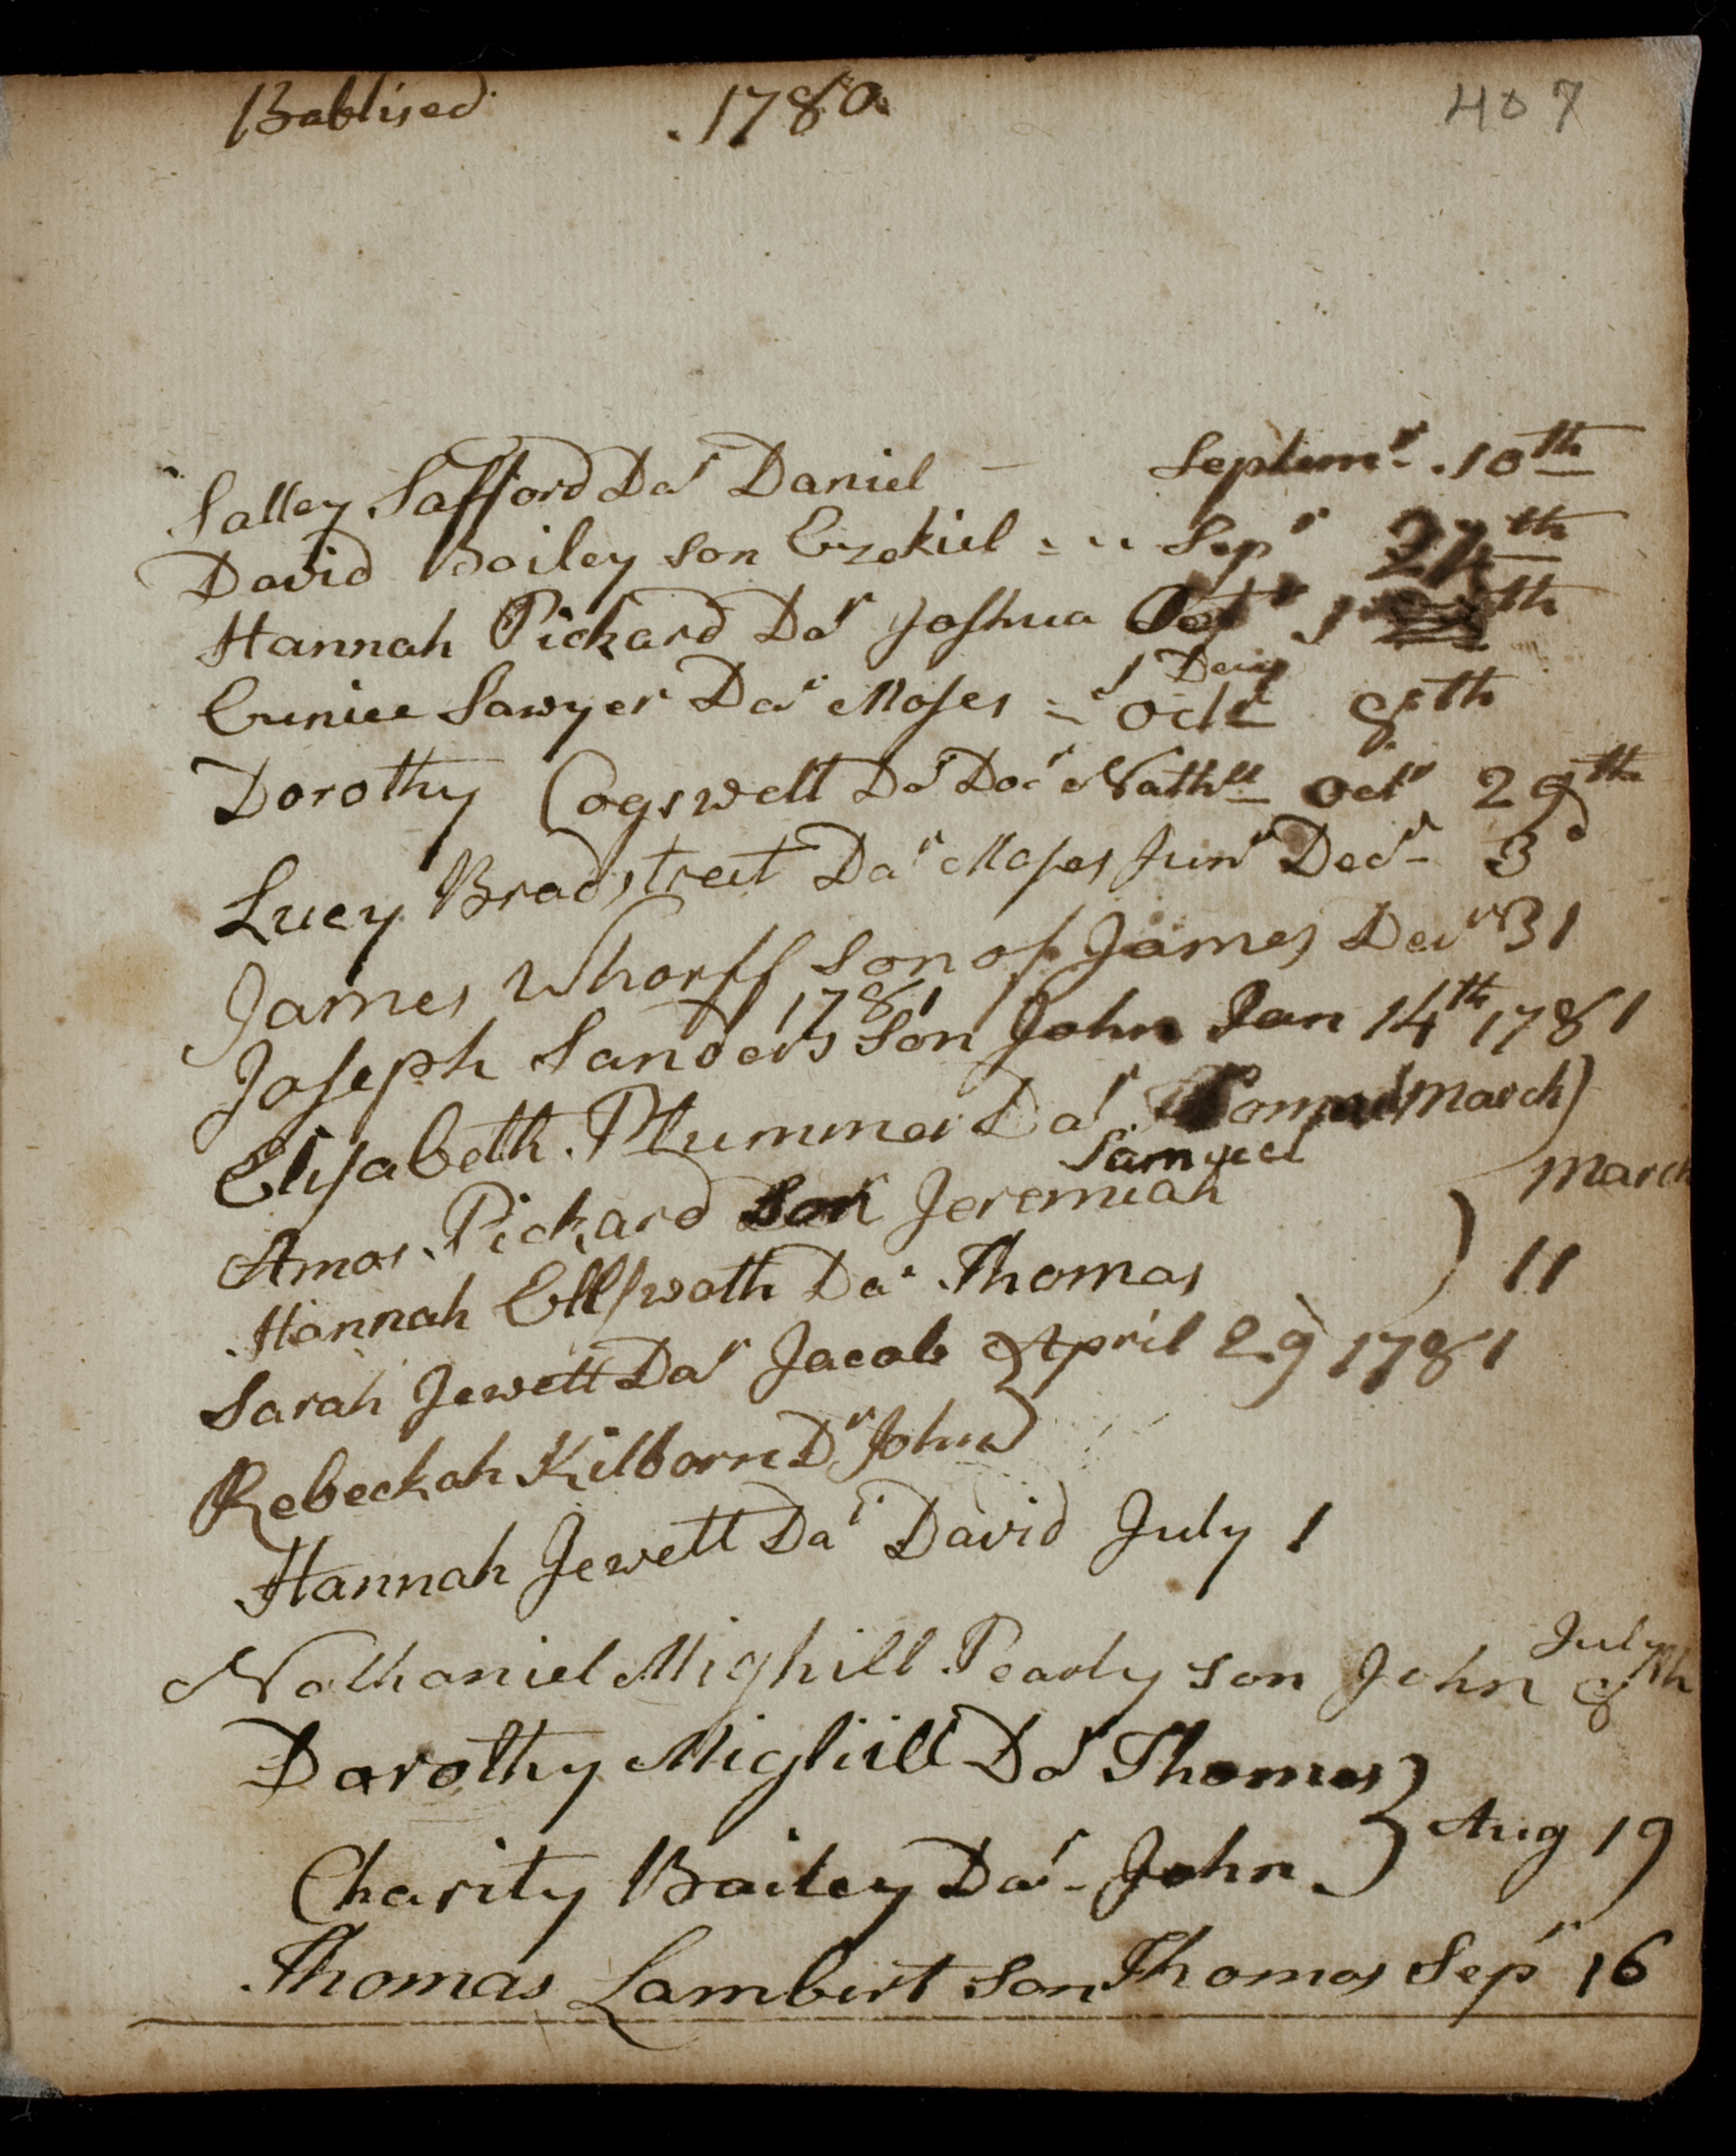 Babtised. .1780. 407
Salley Safford Dar Daniel — Septemr. .10th
David Bailey son Ezekiel Sepr 24th
Hannah Pickard Dar Joshua Octr 1
1 Day
Eunice Sawyer Dar Moses = Octr 8th
Dorothy Cogswell Dr Docr Nathll Octr 29th
Lucy Bradstreet Dar Moses Junr Decr 3d
James Whorff Son of James Decr 31
1781
Joseph Sanders Son John Jan 14th 1781
Elisabeth Plummer Dar March)
Samuel
Amos Pickard Son Jeremiah March
Hannah Ellsworth Dar Thomas ) 11
Sarah Jewett Dar Jacob April 29 1781
Rebeckah Kilborn Dr John)
Hannah Jewett Dar David July 1
July
Nathaniel Mighill Pearly son John 8th
Dorothy Mighill Dar Thomas }
Charity Bailey Dar John } Aug 19
Thomas Lambert Son Thomas Sepr 16